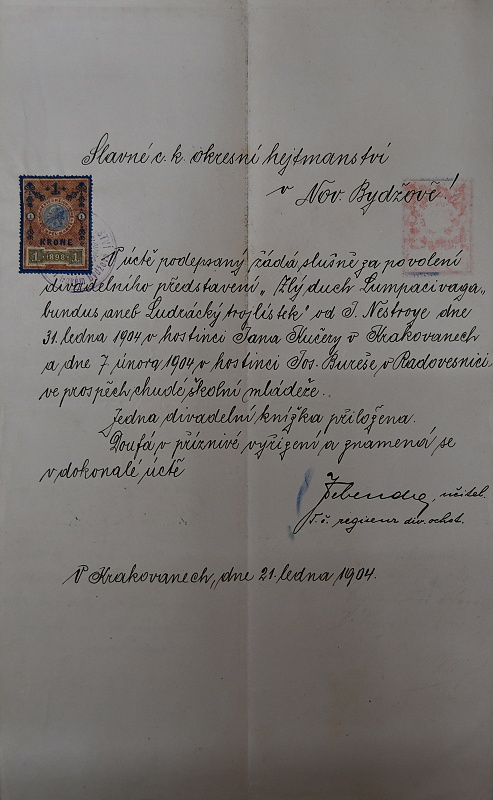 Slavné c. k. okresní hejtmanství
v Nov. Bydžově!
1
KRONE
1 1898 1
V úctě podepsaný žádá slušně za povolení
divadelního představení „Zlý duch Lumpacivaga-
bundus, aneb Ludrácký trojlístek" od J. Nestroye dne
31. ledna 1904 v hostinci Jana Kučery v Krakovanech
a dne 7. února 1904 v hostinci Jos. Bureše v Radovesnici
ve prospěch chudé školní mládeže.
Jedna divadelní knížka přiložena.
Doufá v příznivé vyřízení a znamená se
v dokonalé úctě
učitel.
t. č. regiseur div. ochot.
V Krakovanech, dne 21. ledna 1904.